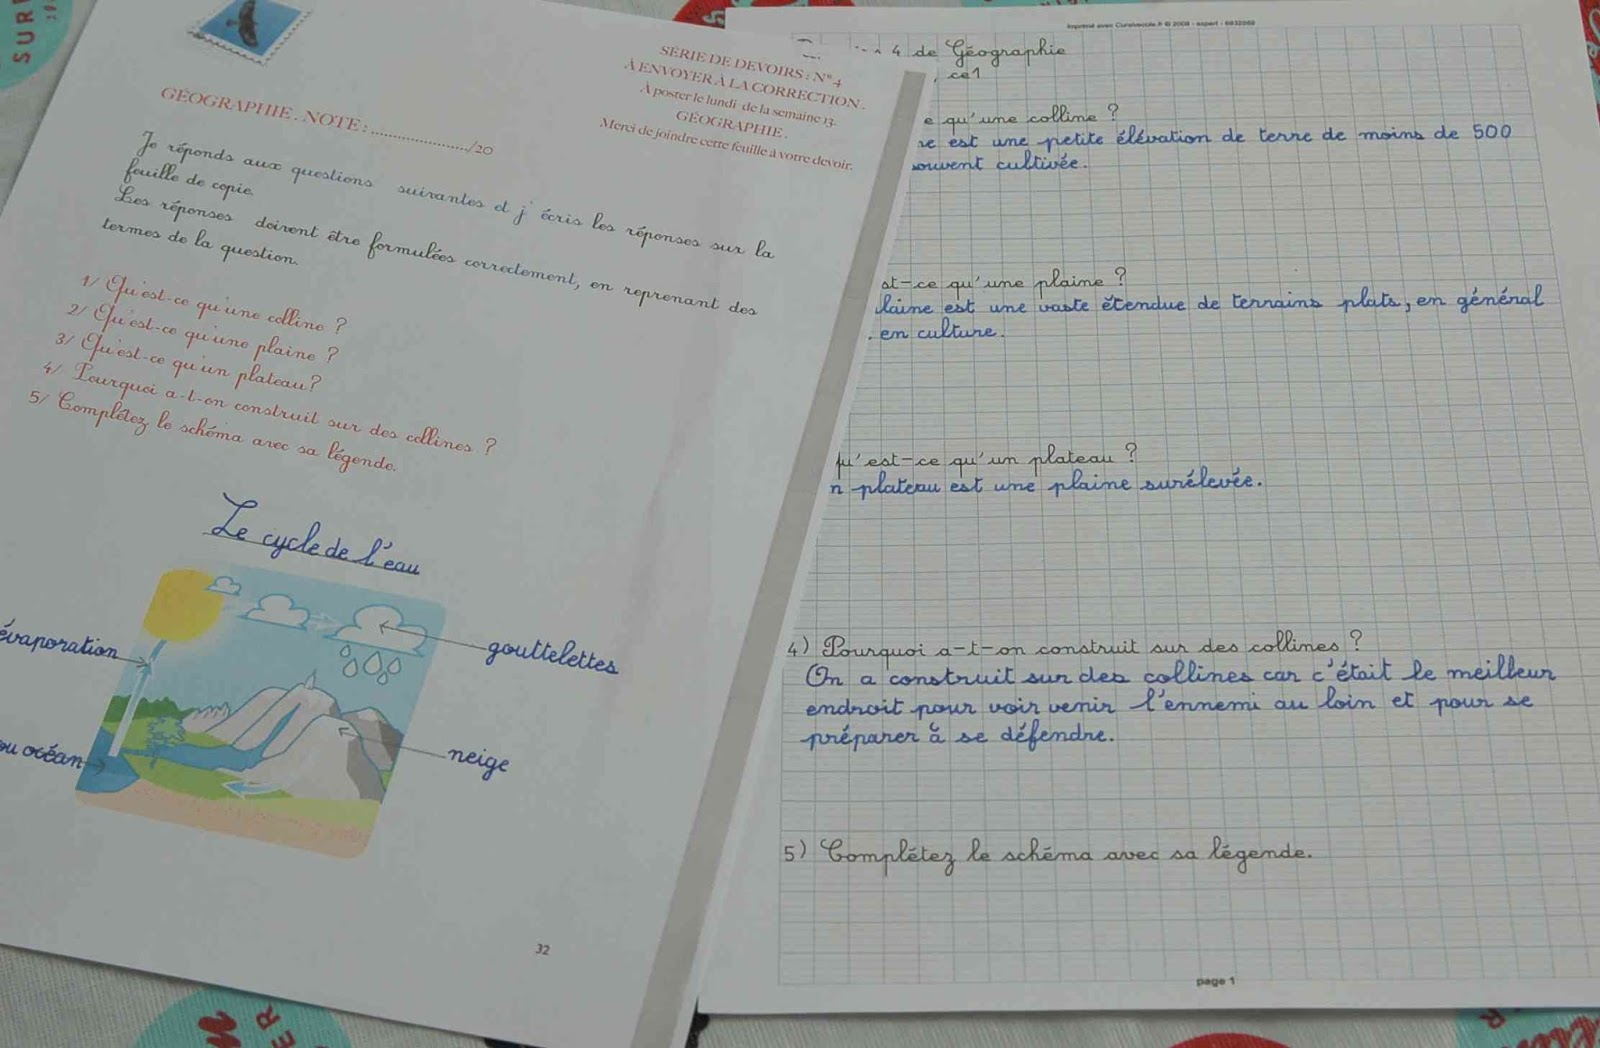 SÉRIE DE DEVOIRS : N° 4
À ENVOYER À LA CORRECTION.
À poster le lundi de la semaine 13.
GÉOGRAPHIE.
Merci de joindre cette feuille à votre devoir.
GÉOGRAPHIE. NOTE : ........................../20
Je réponds aux questions suivantes et j'écris les réponses sur la
feuille de copie.
Les réponses doivent être formulées correctement, en reprenant des
termes de la question.
1/ Qu'est-ce qu'une colline ?
2/ Qu'est-ce qu'une plaine ?
3/ Qu'est-ce qu'un plateau ?
4/ Pourquoi a-t-on construit sur des collines ?
5/ Complétez le schéma avec sa légende.
Le cycle de l'eau
évaporation
gouttelettes
ou océan
neige
32
Imprimé avec Cursivecole.fr © 2008 - expert -
4 de Géographie
ce1
e qu'une colline ?
ne est une petite élévation de terre de moins de 500
souvent cultivée.
st-ce qu'une plaine ?
laine est une vaste étendue de terrains plats, en général
en culture.
Qu'est-ce qu'un plateau ?
n plateau est une plaine surélevée.
4) Pourquoi a-t-on construit sur des collines ?
On a construit sur des collines car c'était le meilleur
endroit pour voir venir l'ennemi au loin et pour se
préparer à se défendre.
5) Complétez le schéma avec sa légende.
page 1
SUR